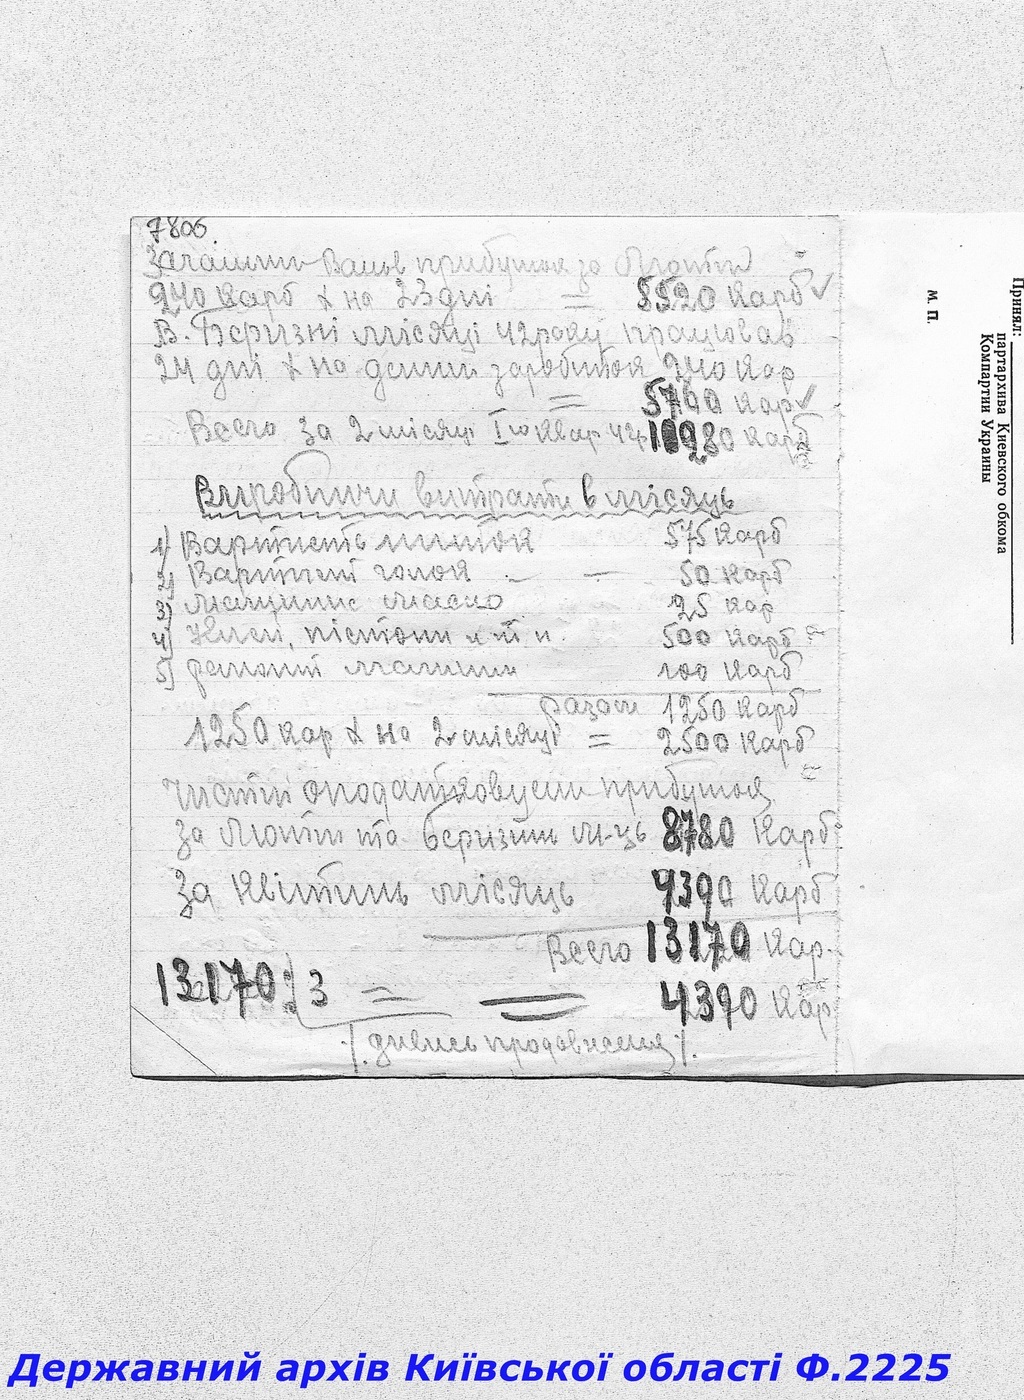 7806.
Загальни Валов прибуток за Лютий
240 карб х на 23 дні = 5520 карб
В. Беризні місяці 42 року працював
24 дні х на денний заробиток 240 кар
= 5760 кар
Всего за 2 місяці I го квар 42р 10980 карб
Виробничи витрати в місяць
1) Вартисть ниток 575 карб
2) Вартисті голок - - 50 карб
3) Машинне масло 25 кар
4) Клей, пістони и т п. 500 карб
5) ремонт машини 100 карб
разом 1250 карб
1250 кар х на 2 місяці = 2500 карб
чисти оподатковуєми прибуток
За Лютий та беризинь м-ць 8780 Карб
За квітинь місяць 4390 карб
Всего 13170 кар.
13170 : 3 = = 4390 кар
/. дивись продовження /.
Принял:
партархива Киевского обкома
Компартии Украины
М. П.
Державний архів Київської області Ф.2225